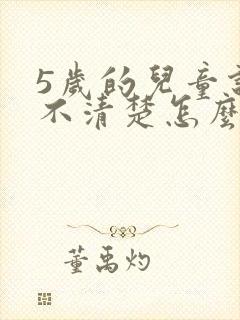 5歲的兒童
不清楚怎麼
董禹灼